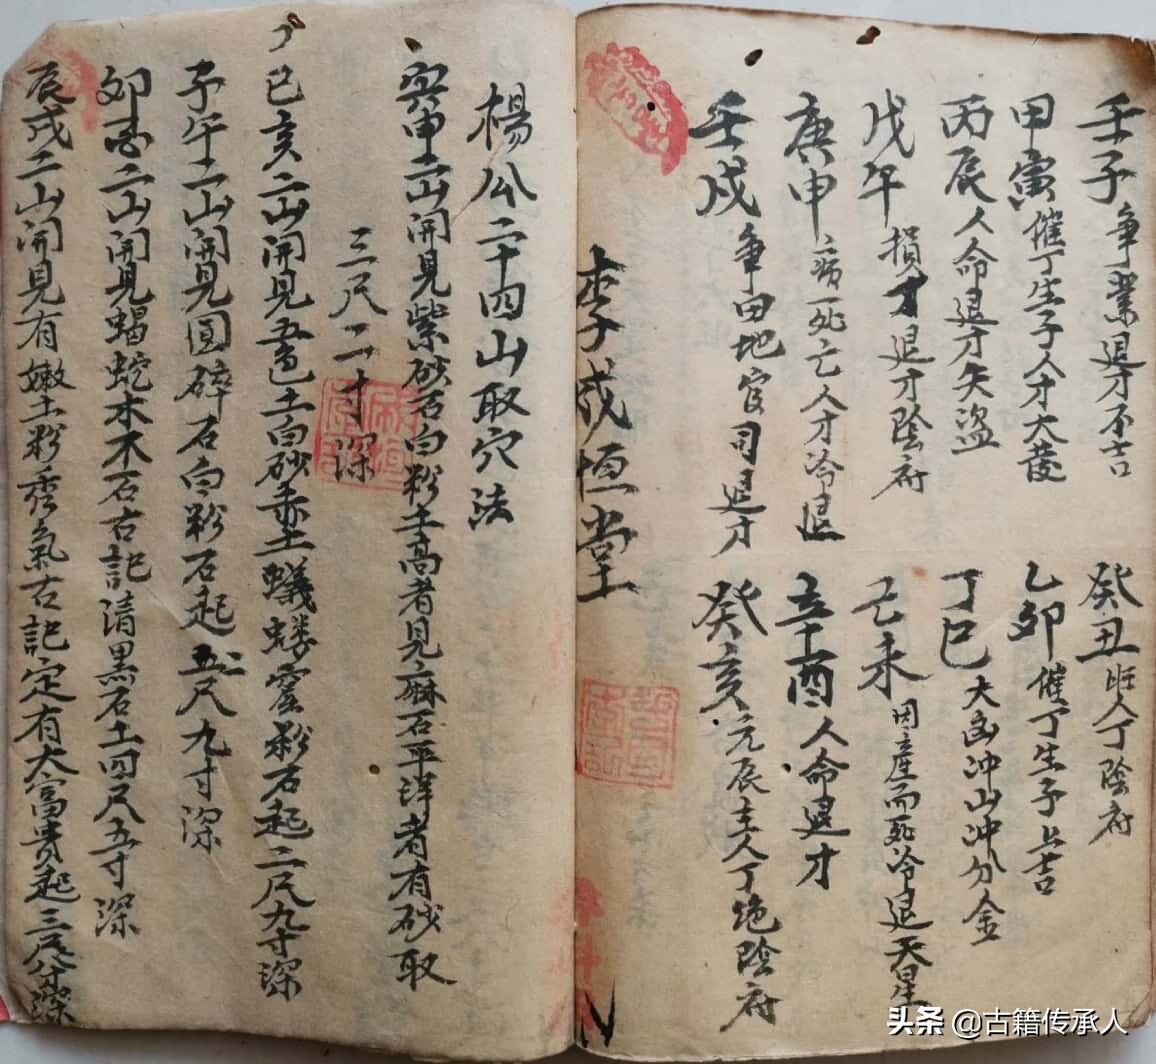 壬子争業退才不吉
癸丑旺人丁陰府
甲寅催丁生子人才大發
乙卯催丁生子上吉
丙辰人命退才失盗
丁巳大凶冲山冲分金
戊午損才退才陰府
己未因產而死冷退天星
庚申病死亡人才冷退
辛酉人命退才
壬戌争田地官司退才
癸亥元辰主人丁绝陰府
李成恒堂
楊公二十四山取穴法
寅申二山開見紫砂石白粉土高者見麻石平洋者有砂取
三尺二寸深
巳亥二山開見五色土白砂土蟻蝼窟粉石起二尺九寸深
子午二山開見圓碎石白粉石起五尺九寸深
卯酉二山開見蝎蛇木不石古記清黑石土四尺五寸深
辰戌二山開見有嫩土粉秀氣古記定有大富贵起三尺深
头条 @古籍传承人